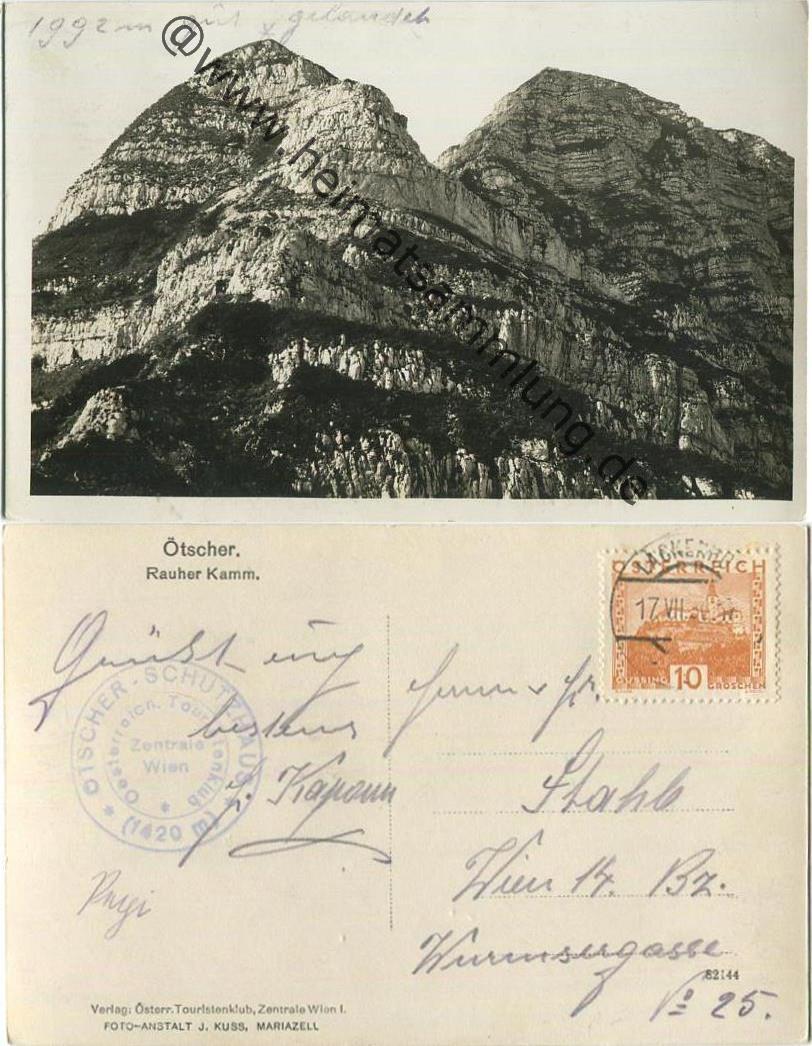 1992 m gelandet
@www.heimatsammlung.de
Ötscher.
Rauher Kamm.
LACKENHO
ÖSTERREICH
17.VII
GÜSSING 10 GROSCHEN
ÖTSCHER-SCHUTZHAUS
Oesterreich. Touristenklub
Zentrale
Wien
(1420 m)
bestens
Stahl
Wien 14. Bz.
Wurmsergasse
82144
No 25.
Verlag: Österr. Touristenklub, Zentrale Wien I.
FOTO-ANSTALT J. KUSS, MARIAZELL